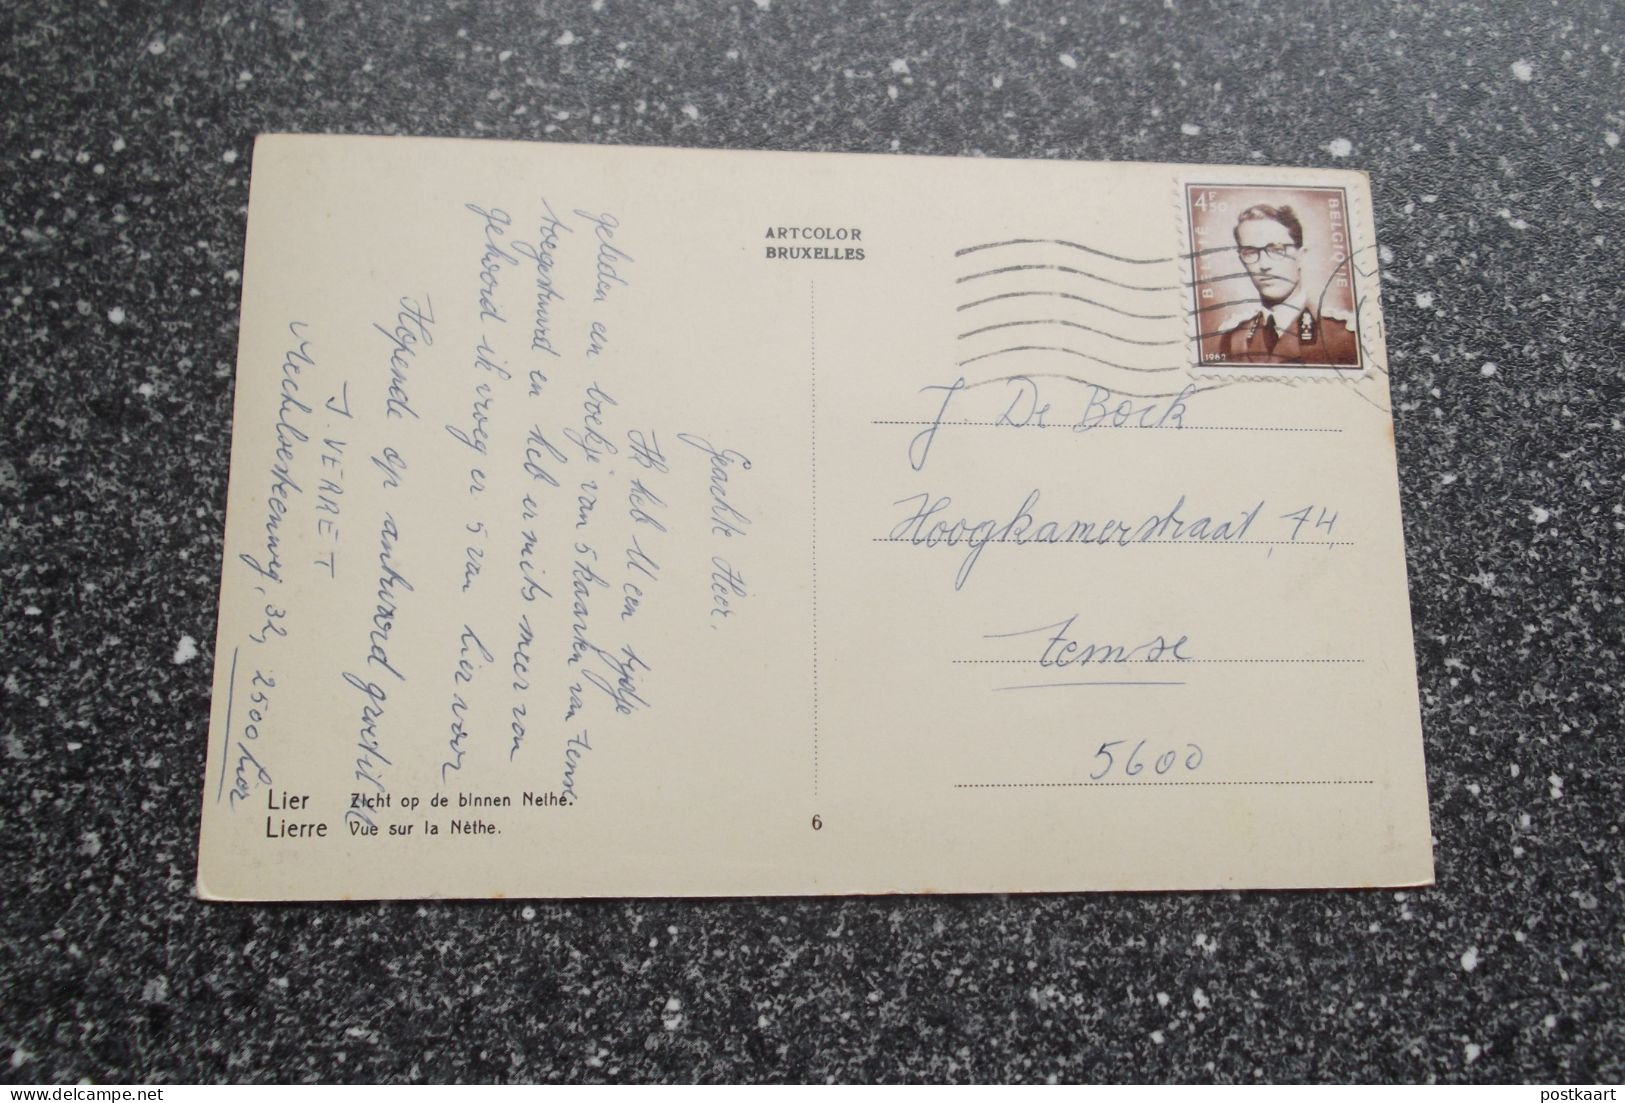 ARTCOLOR
BRUXELLES
4F50
BELGIË
BELGIQUE
1962
Geachte Heer,
Ik heb U een tijdje
geleden een boekje van 5 kaarten van Temse
toegestuurd en heb er niets meer van
gehoord ik vroeg er 5 van hier voor
Hopende op antwoord groet ik U
J. VERRET
Mechelsesteenweg, 32, 2500 Lier
J De Bock
Hoogkamerstraat, 74,
Temse
5600
Lier Zicht op de binnen Nethe.
Lierre Vue sur la Nèthe.
6
postkaart